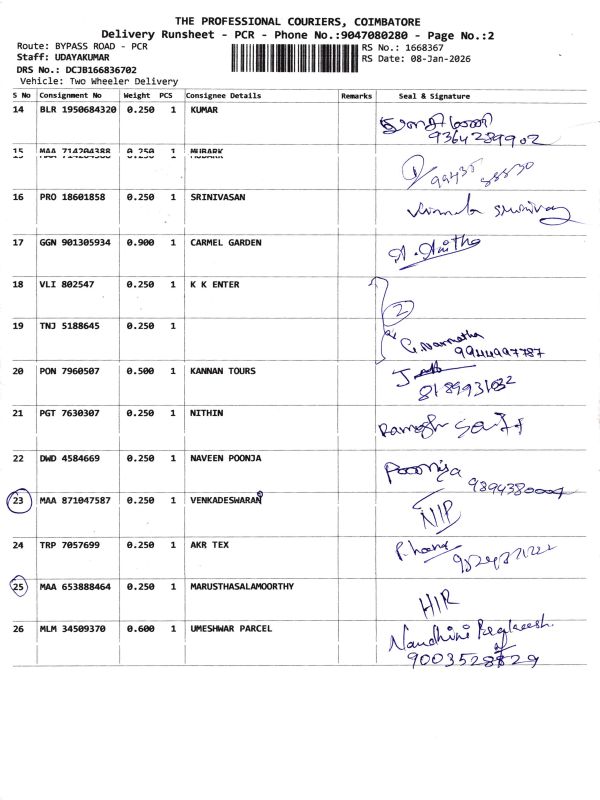 THE PROFESSIONAL COURIERS, COIMBATORE
Delivery Runsheet - PCR - Phone No.:9047080280 - Page No.:2
Route: BYPASS ROAD - PCR
RS No.: 1668367
Staff: UDAYAKUMAR
RS Date: 08-Jan-2026
DRS No.: DCJB166836702
Vehicle: Two Wheeler Delivery
S No Consignment No Weight PCS Consignee Details Remarks Seal & Signature
14 BLR 1950684320 0.250 1 KUMAR
9364289902
15 MAA 714204388 0.250 1 MUBARK
16 PRO 18601858 0.250 1 SRINIVASAN
17 GGN 901305934 0.900 1 CARMEL GARDEN
18 VLI 802547 0.250 1 K K ENTER
2
19 TNJ 5188645 0.250 1
9944997787
20 PON 7960507 0.500 1 KANNAN TOURS
8189931032
21 PGT 7630307 0.250 1 NITHIN
22 DWD 4584669 0.250 1 NAVEEN POONJA
23 MAA 871047587 0.250 1 VENKADESWARAN
NIP
24 TRP 7057699 0.250 1 AKR TEX
25 MAA 653888464 0.250 1 MARUSTHASALAMOORTHY
HIR
26 MLM 34509370 0.600 1 UMESHWAR PARCEL
Nandhini